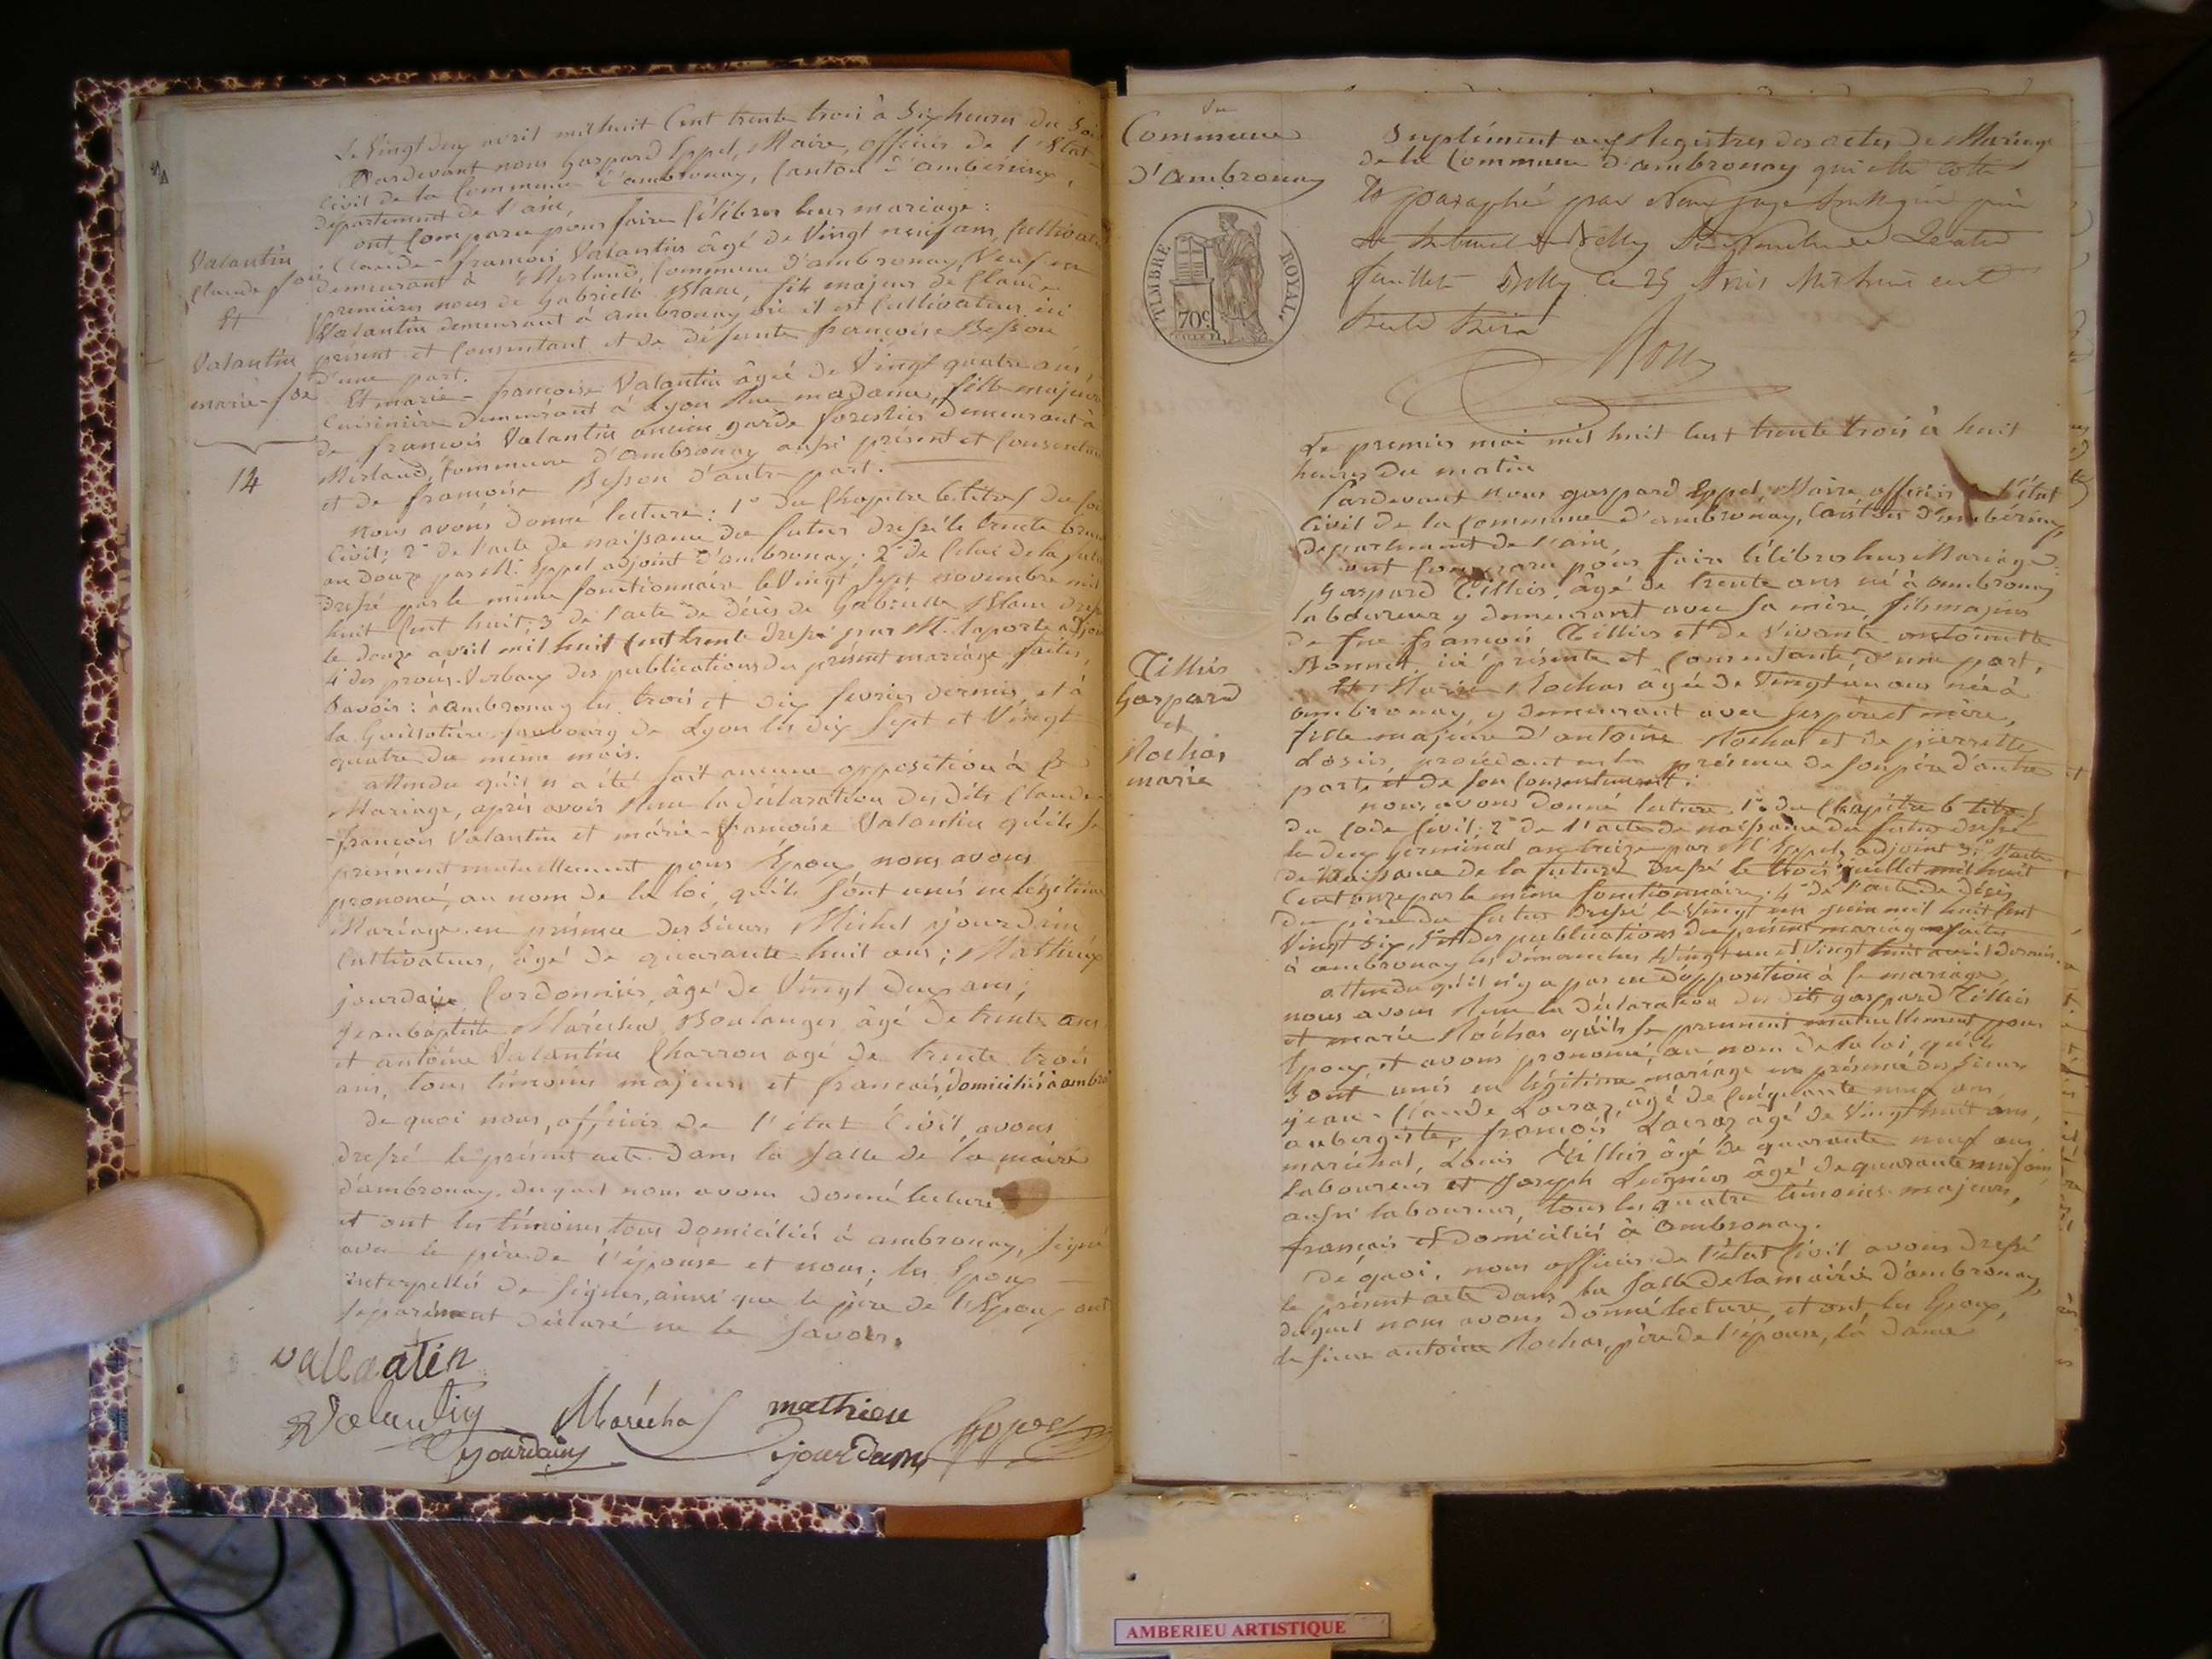 Le Vingt deux avril mil huit Cent trente trois à Six heures du Soir
Pardevant nous Gaspard Eppel, Maire, officier de l'état
civil de la Commune d'ambronay, Canton d'ambérieux,
département de l'ain,
ont Comparu pour faire Célébrer leur mariage :
Claude-françois Valantin âgé de Vingt neuf ans, Cultivateur
demeurant à Merland, Commune d'ambronay, Veuf en
premières noces de Gabrielle Blanc, fils majeur de Claude
Valantin demeurant à ambronay où il est Cultivateur ici
présent et Consentant et de défunte françoise Besson
d'une part.
Et marie-françoise Valantin âgée de Vingt quatre ans,
Cuisinière demeurant à Lyon Rue madame, fille majeure
de françois Valantin ancien garde forestier demeurant à
Merland, Commune d'ambronay aussi présent et Consentant
et de françoise Besson d'autre part.
Valantin
Claude fois
Et
Valantin
marie-foise
14
Nous avons donné lecture : 1° du Chapitre 6 titre 5 du Code
Civil; 2° de l'acte de naissance du futur dressé le trente
an douze par M. Eppel adjoint d'ambronay; 2° de Celui de la future
dressé par le même fonctionnaire le Vingt Sept novembre mil
huit Cent huit; 3° de l'acte de décès de Gabrielle Blanc dressé
le douze avril mil huit Cent trente dressé par M. laporte adjoint
4° des procès-Verbaux des publications du présent mariage faites,
Savoir : à ambronay les trois et dix février dernier, et à
la Guillotière faubourg de Lyon les dix Sept et Vingt
quatre du même mois.
attendu qu'il n'a été fait aucune opposition à Ce
Mariage, après avoir Reçu la déclaration des dits Claude
-françois Valantin et marie-françoise Valantin qu'ils Se
prennent mutuellement pour Epoux nous avons
prononcé, au nom de la loi, qu'ils Sont unis en légitime
Mariage en présence des Sieurs Michel yourdain
Cultivateur, âgé de quarante-huit ans; Mathieu
jourdain Cordonnier, âgé de Vingt deux ans;
Jeanbaptiste Maréchal Boulanger âgé de trente ans
et antoine Valantin Charron agé de trente trois
ans, tous témoins majeurs et français, domiciliés à ambro
de quoi nous, officier de l'état Civil avons
dressé le présent acte dans la Salle de la mairie
d'ambronay, duquel nous avons donné lecture
et ont les témoins tous domiciliés à ambronay, Signé
avec le père de l'épouse et nous; les Epoux
interpellés de Signer, ainsi que le père de l'Epoux ont
Séparément déclaré ne le Savoir.
vallantin
Valantin
Maréchal
mathieu
jourdain
yourdain
Eppel
Commune
d'Ambronay
TIMBRE ROYAL
70c
Suplément aux Registres des actes de Mariage
de la Commune d'ambronay qui été Cotté
Et paraphé par Nous juge
feuillets Belley Ce 25 Avril Mil huit cent
trente trois
Le premier mai mil huit Cent trente trois à huit
heures du matin
Pardevant nous gaspard Eppel, Maire officier de l'état
Civil de la Commune d'ambronay, Canton d'ambérieux,
département de l'ain
ont Comparu pour faire Célébrer leur Mariage :
Gaspard Tillier, âgé de trente ans né à ambronay
laboureur y demeurant avec Sa mère, fils majeur
de feu françois Tillier et de Vivante antoinette
Bonnet ici présente et Consentante, d'une part,
Et Marie Rochas âgée de Vingt un ans née à
ambronay, y demeurant avec Ses père et mère,
fille majeure d'antoine Rochas et de pierrette
Losier, procédant en la présence de Son père d'autre
part, et de Son Consentement.
Tillier
Gaspard
et
Rochas
marie
nous avons donné lecture, 1° du Chapitre 6 titre 5
du Code Civil; 2° de l'acte de naissance du futur dressé
le deux germinal an treize par M. Eppel, adjoint; 3° l'acte
de Naissance de la future dressé le trois juillet mil huit
Cent onze par le même fonctionnaire; 4° de l'acte de décès
du père du futur dressé le Vingt un juin mil huit Cent
Vingt Six, 5° et des publications du présent mariage faites
à ambronay les dimanches Vingt un et Vingt huit avril dernier.
attendu qu'il n'y a pas eu d'opposition à Ce mariage,
nous avons Reçu la déclaration des dits gaspard Tillier
et marie Rochas qu'ils Se prennent mutuellement pour
Epoux, et avons prononcé, au nom de la loi, qu'ils
Sont unis en légitime mariage en présence des Sieurs
jean-Claude Lairaz, âgé de Cinquante neuf ans,
aubergiste, françois Lairaz âgé de Vingt huit ans,
maréchal, Louis Tillier âgé de quarante neuf ans
laboureur et Joseph âgé de quarante neuf ans
aussi laboureur, tous les quatre témoins majeurs,
français et domiciliés à ambronay.
De quoi, nous officier de l'état Civil avons dressé
le présent acte dans la Salle de la mairie d'ambronay,
duquel nous avons donné lecture, et ont, les Epoux,
le Sieur antoine Rochas, père de l'épouse, la dame
AMBERIEU ARTISTIQUE